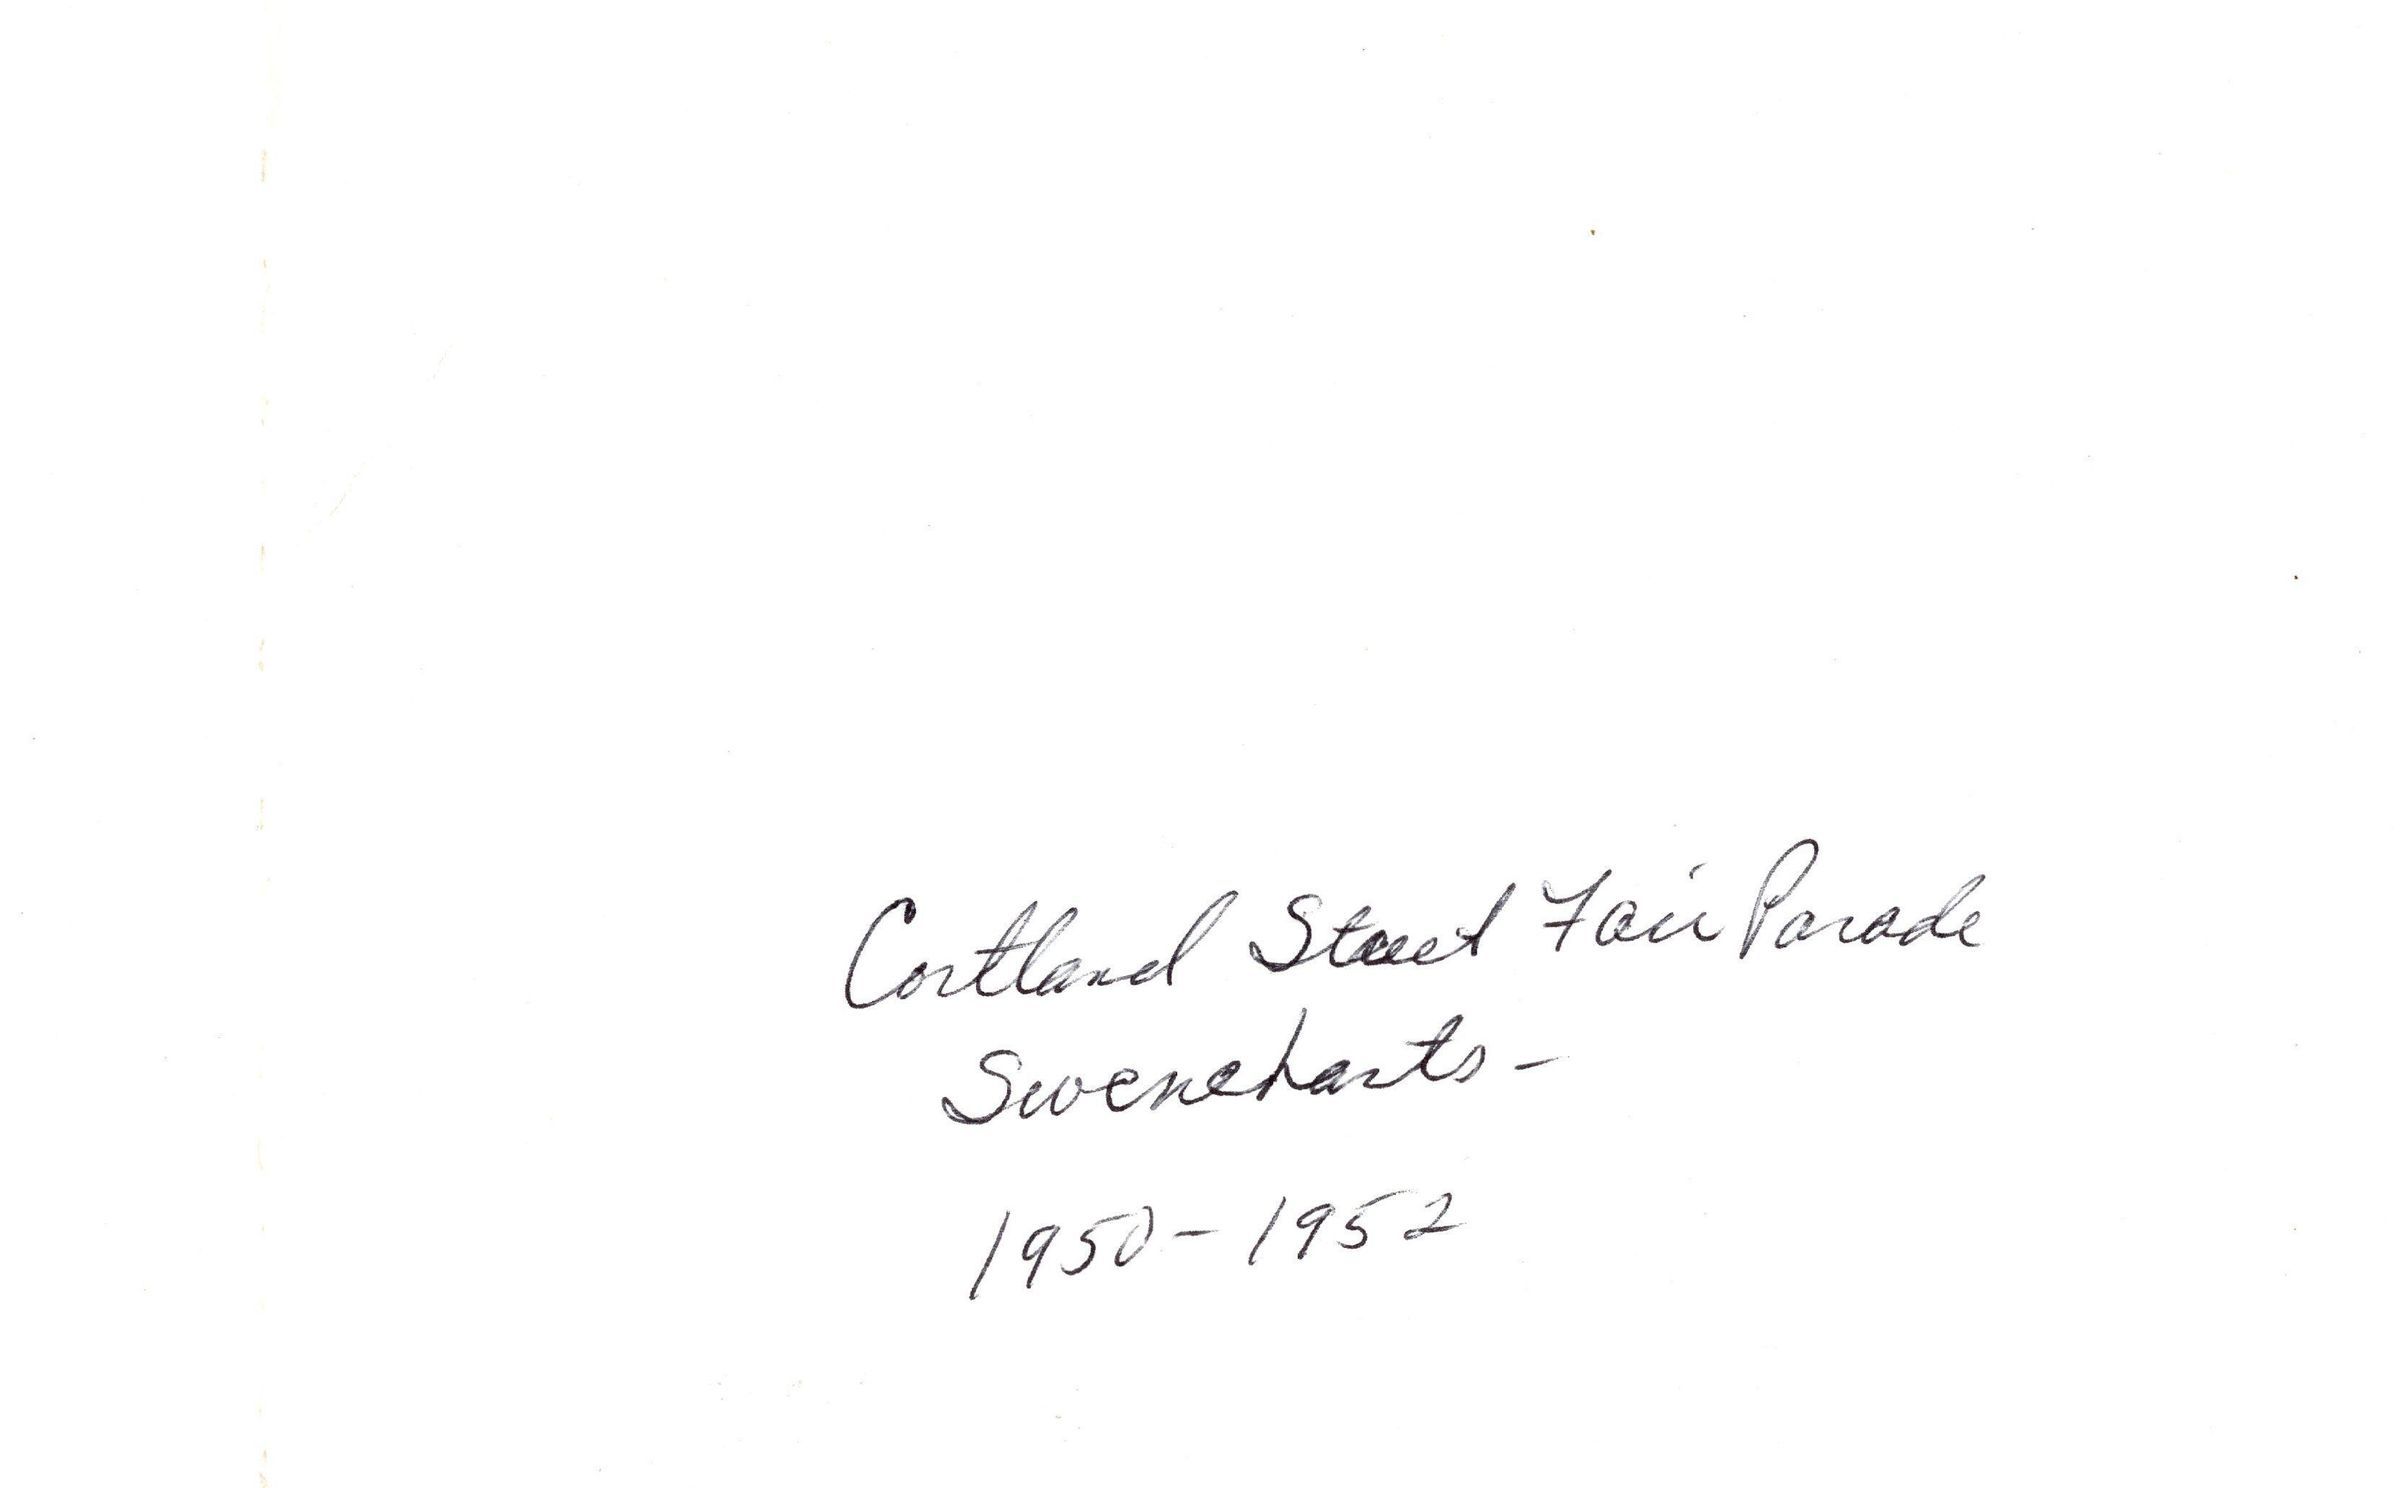 Cortland Street Fair Parade
Sweneharts -
1950 - 1952